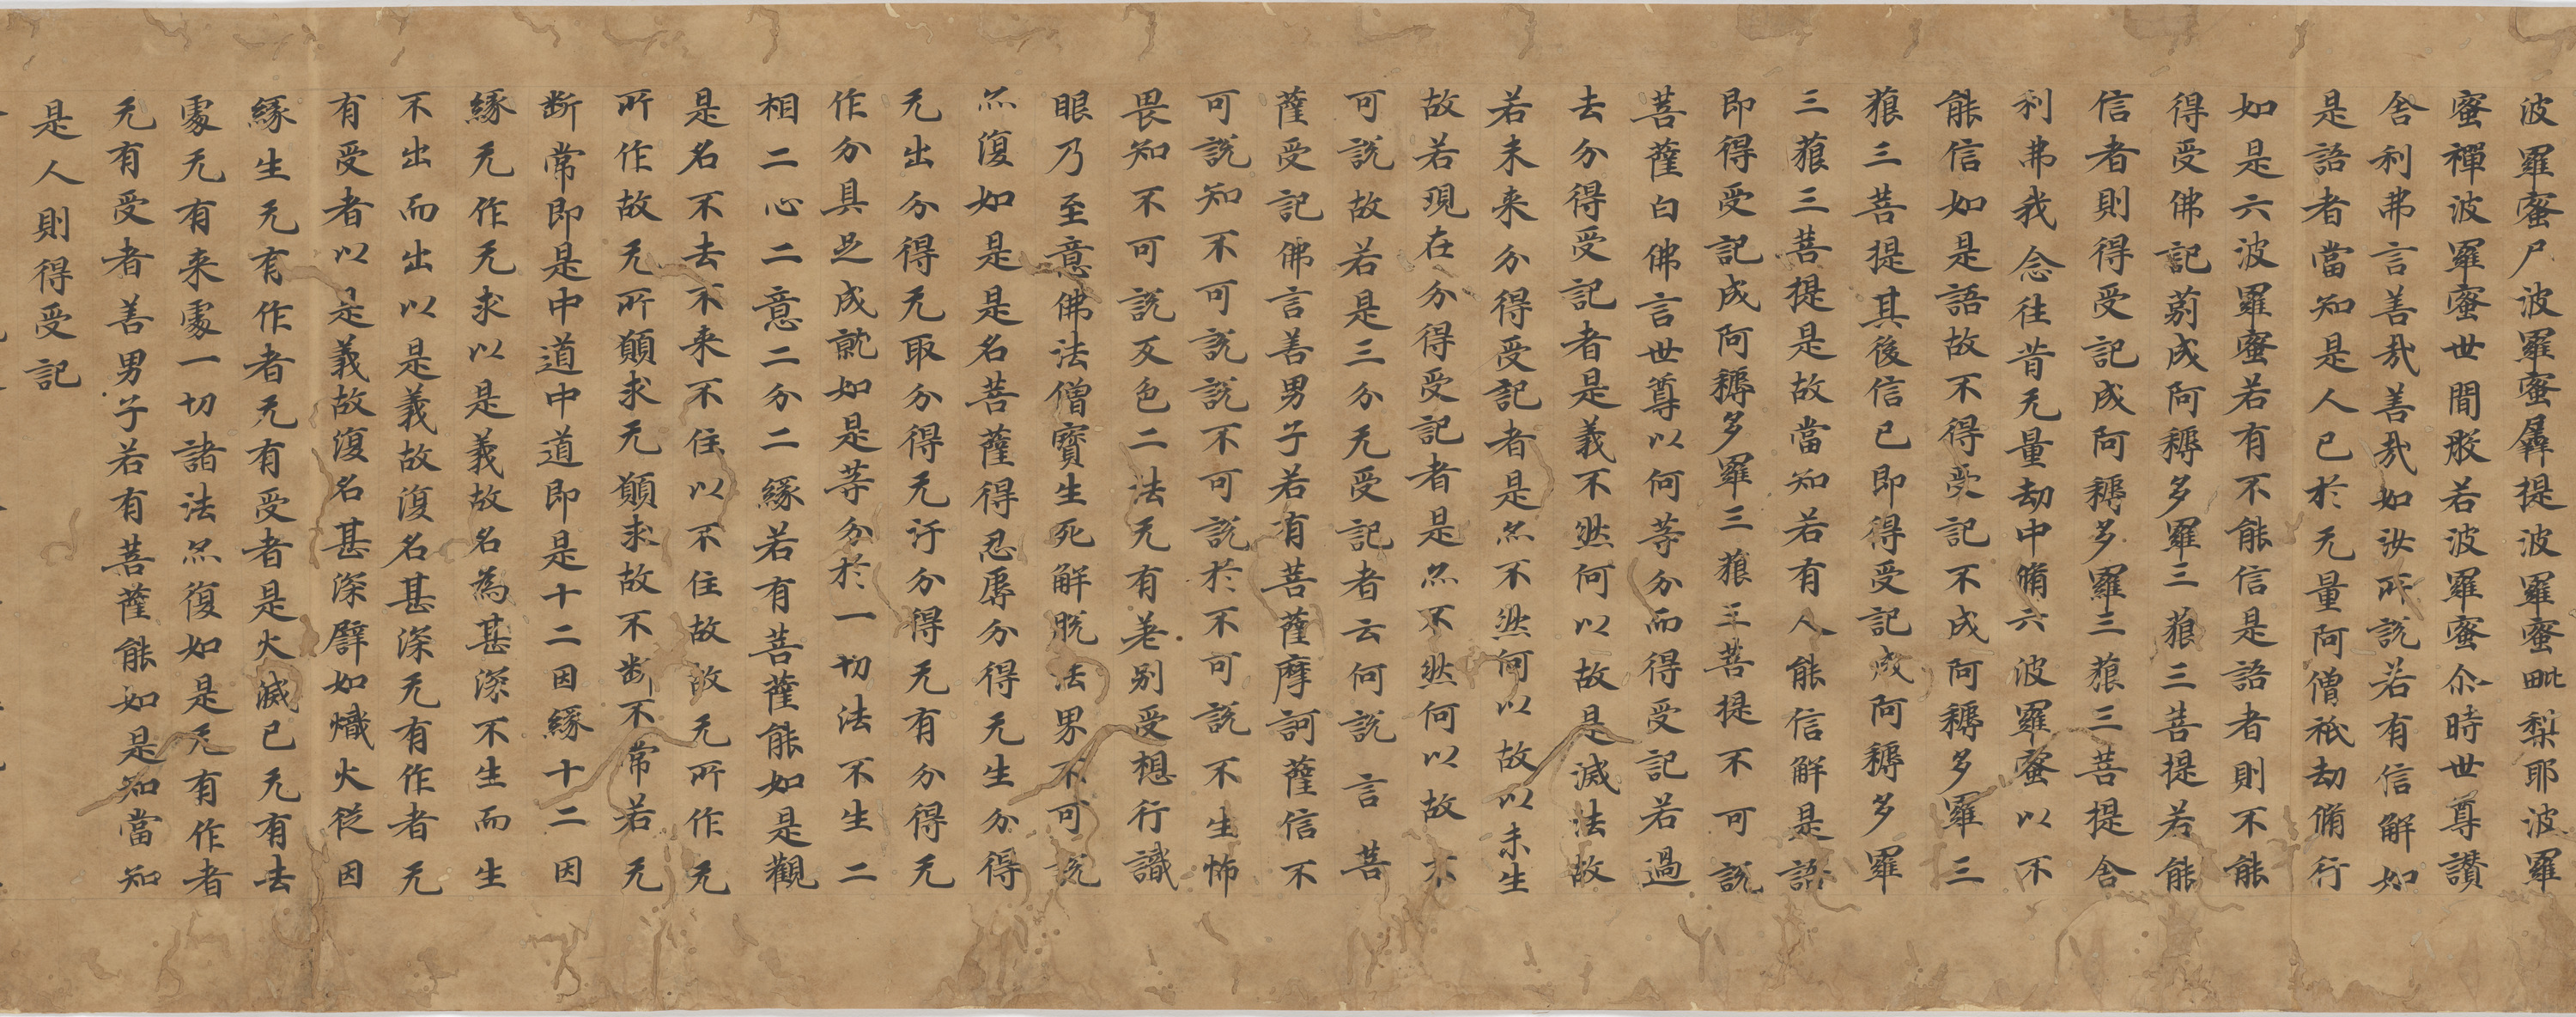 波羅蜜尸波羅蜜羼提波羅蜜毗梨耶波羅
蜜禪波羅蜜世間般若波羅蜜尒時世尊讃
舍利弗言善哉善哉如汝所説若有信解如
是語者當知是人已於无量阿僧祇劫脩行
如是六波羅蜜若有不能信是語者則不能
得受佛記莂成阿耨多羅三藐三菩提若能
信者則得受記成阿耨多羅三藐三菩提舍
利弗我念往昔无量劫中脩六波羅蜜以不
能信如是語故不得受記不成阿耨多羅三
藐三菩提其後信已即得受記成阿耨多羅
三藐三菩提是故當知若有人能信解是語
即得受記成阿耨多羅三藐三菩提不可説
菩薩白佛言世尊以何等分而得受記若過
去分得受記者是義不然何以故是滅法故
若未来分得受記者是亦不然何以故以未生
故若現在分得受記者是亦不然何以故不
可説故若是三分无受記者云何説言菩
薩受記佛言善男子若有菩薩摩訶薩信不
可説知不可説説不可説於不可説不生怖
畏知不可説及色二法无有差别受想行識
眼乃至意佛法僧寶生死解脱法界不可説
亦復如是是名菩薩得忍辱分得无生分得
无出分得无取分得无行分得无有分得无
作分具足成就如是等分於一切法不生二
相二心二意二分二緣若有菩薩能如是觀
是名不去不来不住以不住故故无所作无
所作故无所願求无願求故不断不常若无
断常即是中道中道即是十二因緣十二因
緣无作无求以是義故名為甚深不生而生
不出而出以是義故復名甚深无有作者无
有受者以是義故復名甚深譬如熾火従因
緣生无有作者无有受者是火滅已无有去
處无有来處一切諸法亦復如是无有作者
无有受者善男子若有菩薩能如是知當知
是人則得受記